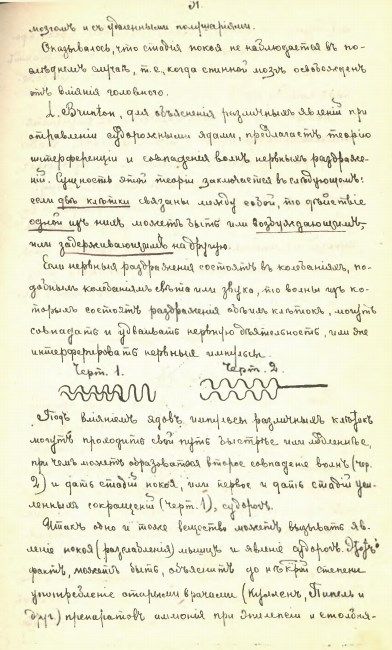 31.
мозгомъ и съ удаленными полушаріями.
Оказывалось, что стадія покоя не наблюдается въ по-
слѣднемъ случаѣ, т. е., когда спинной мозгъ освобожденъ
отъ вліянія головного.
L. Brunton, для объясненія различныхъ явленій при
отравленіи судорожными ядами, предлагаетъ теорію
интерференціи и совпаденія волнъ нервныхъ раздраже-
ній. Сущность этой теоріи заключается въ слѣдующемъ:
если двѣ клѣтки связаны между собой, то дѣйствіе
одной изъ нихъ можетъ быть или возбуждающимъ
или задерживающимъ на другую.
Если нервныя раздраженія состоятъ въ колебаніяхъ, по-
добныхъ колебаніямъ свѣта или звука, то волны изъ ко-
торыхъ состоятъ раздраженія обѣихъ клѣтокъ, могутъ
совпадать и удваивать нервную дѣятельность, или же
интерферировать нервные импульсы.
Черт. 1. Черт. 2.
Подъ вліяніемъ ядовъ импульсы различныхъ клѣтокъ
могутъ проходить свой путь быстрѣе или медленнѣе,
при чемъ можетъ образоваться второе совпаденіе волнъ (чер.
2) и дать стадій покоя, или первое и дать стадій уси-
ленныхъ сокращеній (черт. 1), судорогъ.
Итакъ одно и тоже вещество можетъ вызывать яв-
леніе покоя (разслабленія) мышцъ и явленіе судорогъ. Этотъ
фактъ, можетъ быть, объяснитъ до нѣкот. степени
употребленіе старыми врачами (Кулленъ, и
друг.) препаратовъ аммонія при эпилепсіи и столбня-